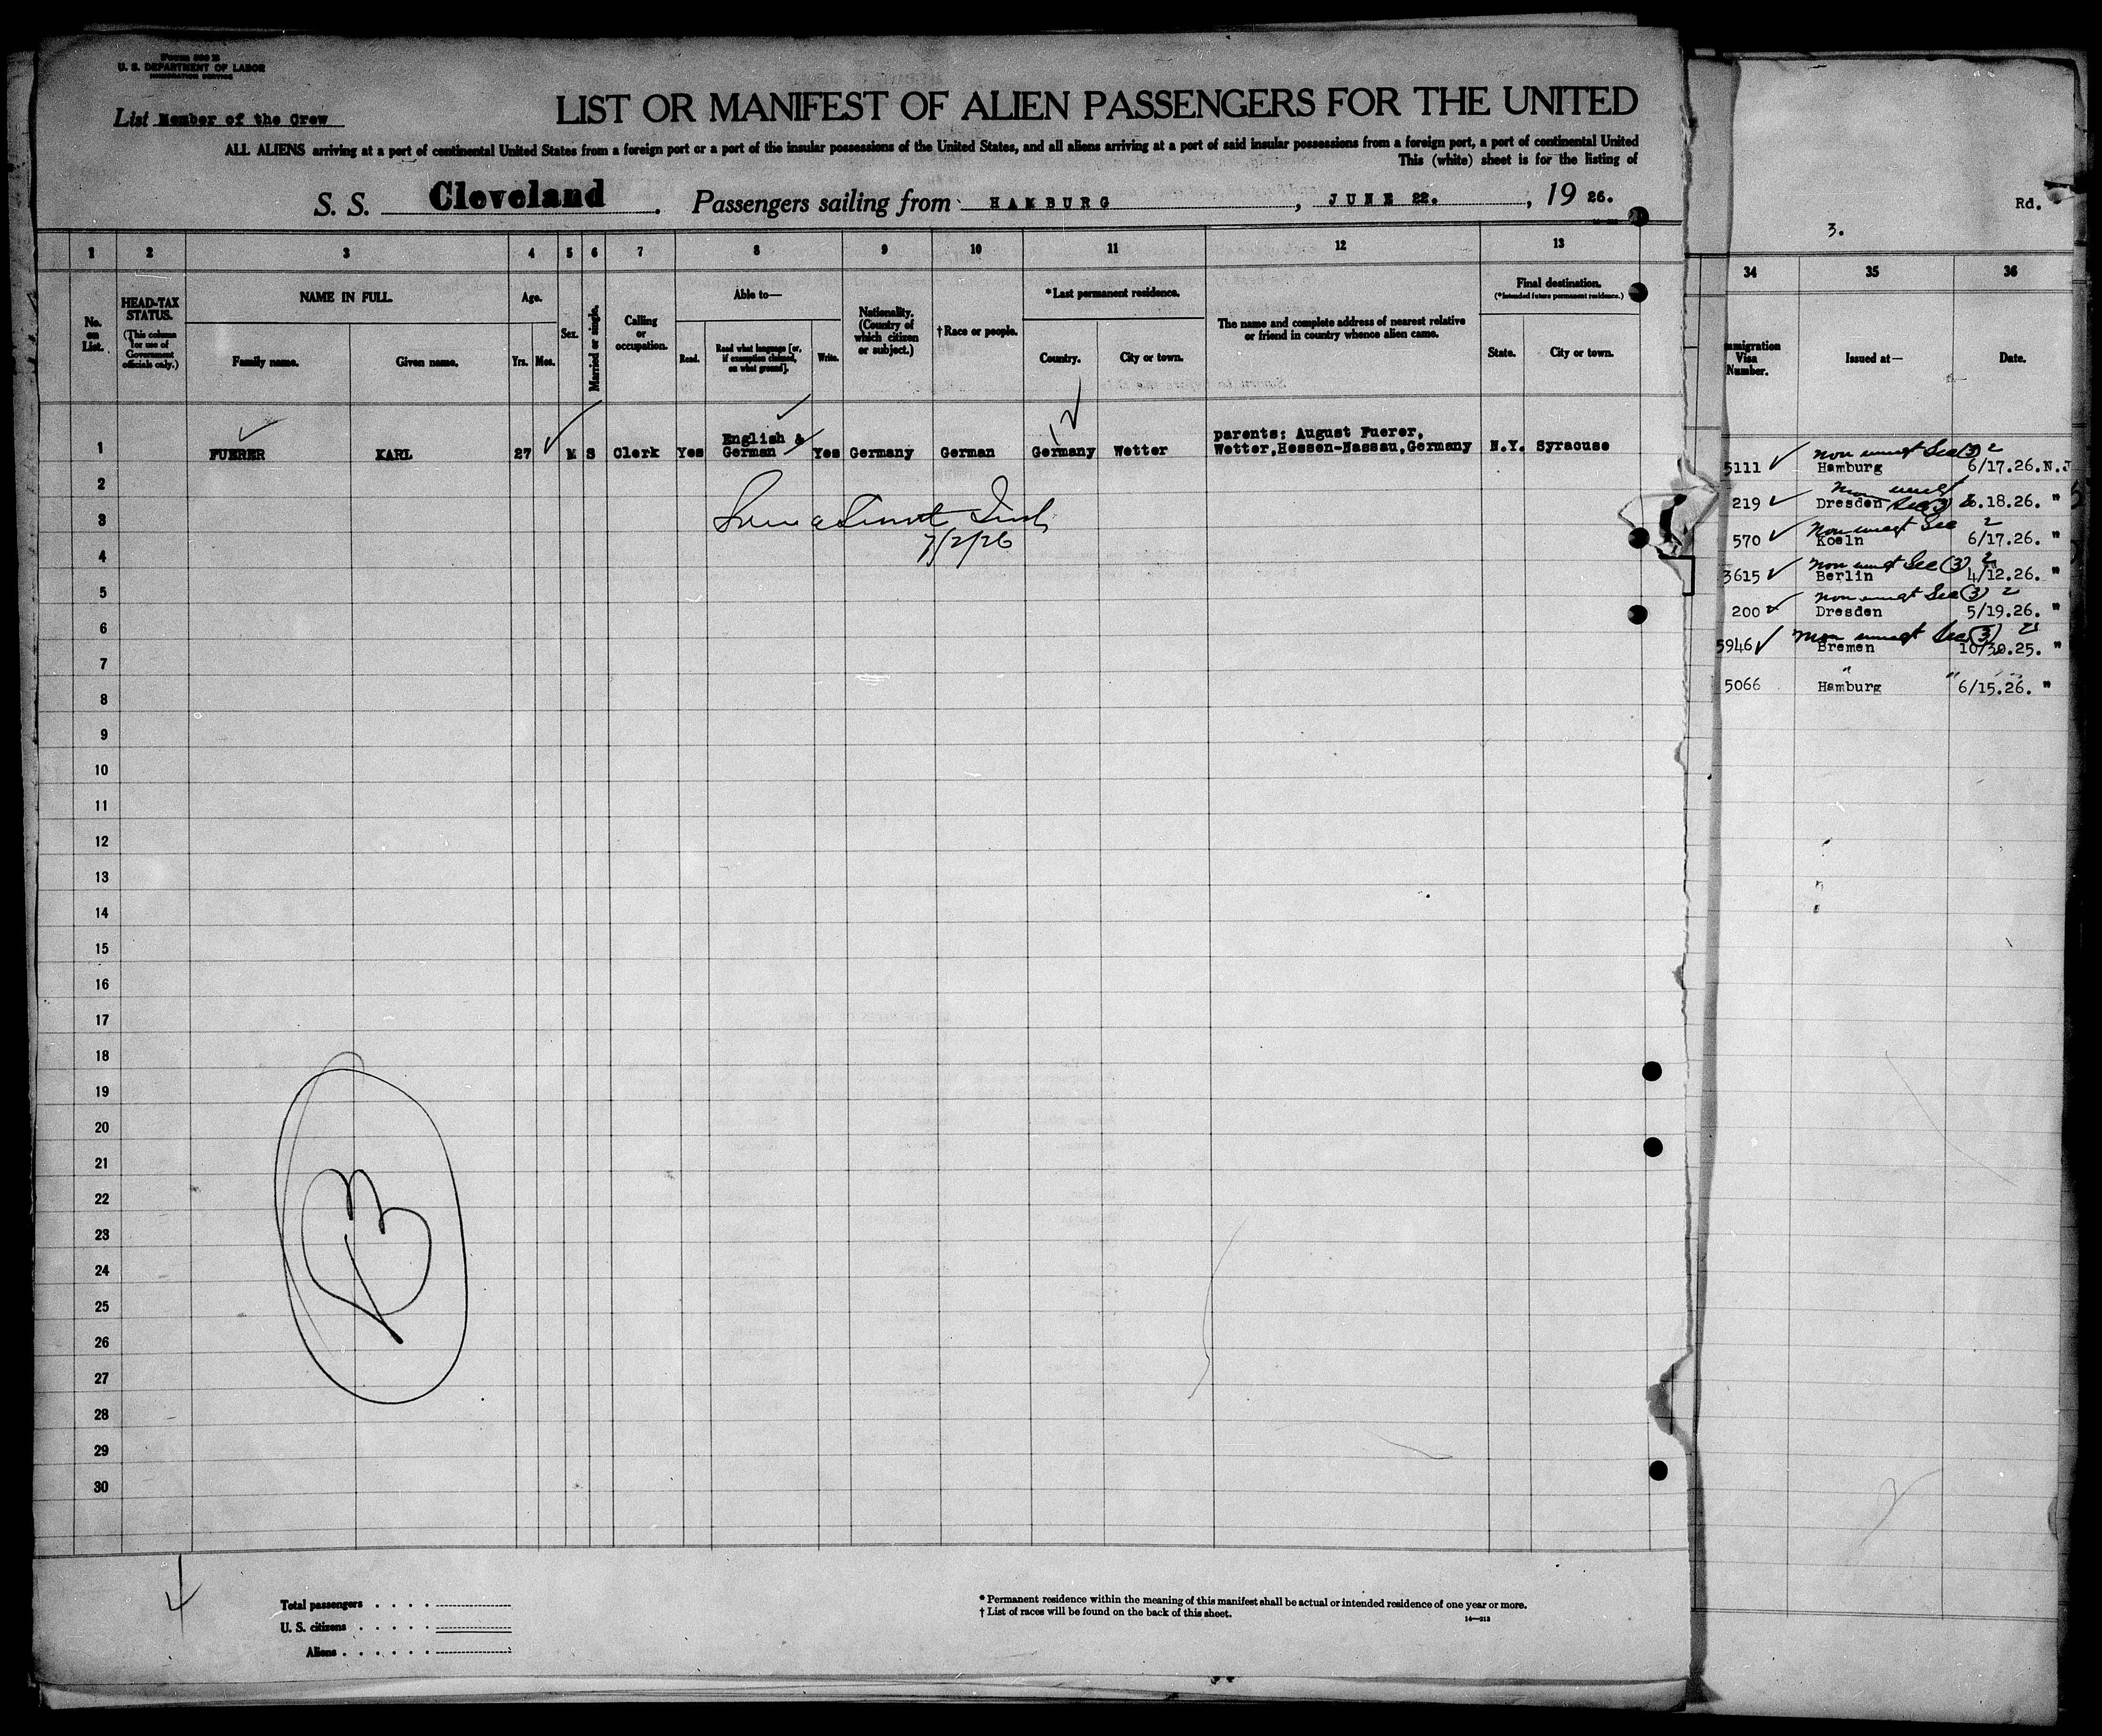 Form 500 B
U. S. DEPARTMENT OF LABOR
IMMIGRATION SERVICE
List Member of the Crew
LIST OR MANIFEST OF ALIEN PASSENGERS FOR THE UNITED
ALL ALIENS arriving at a port of continental United States from a foreign port or a port of the insular possessions of the United States, and all aliens arriving at a port of said insular possessions from a foreign port, a port of continental United
This (white) sheet is for the listing of
S. S. Cleveland. Passengers sailing from HAMBURG, JUNE 22., 19 26.
1 2 3 4 5 6 7 8 9 10 11 12 13
No. on List.
HEAD-TAX STATUS.
(This column for use of Government officials only.)
NAME IN FULL.
Family name. Given name.
Age.
Yrs. Mos.
Sex.
Married or single.
Calling or occupation.
Able to—
Read. Read what language [or, if exemption claimed, on what ground]. Write.
Nationality. (Country of which citizen or subject.)
†Race or people.
*Last permanent residence.
Country. City or town.
The name and complete address of nearest relative or friend in country whence alien came.
Final destination.
(*Intended future permanent residence.)
State. City or town.
1 FUERER KARL 27 M S Clerk Yes English & German Yes Germany German Germany Wetter parents: August Fuerer, Wetter,Hessen-Nassau,Germany N.Y. Syracuse
2
3
7/2/26
4
5
6
7
8
9
10
11
12
13
14
15
16
17
18
19
20
21
22
23
24
25
26
27
28
29
30
Total passengers
U. S. citizens
Aliens
* Permanent residence within the meaning of this manifest shall be actual or intended residence of one year or more.
† List of races will be found on the back of this sheet.
14—213
Rd.
3.
34 35 36
mmigration Visa Number.
Issued at—
Date.
non immgt Sec (3) 2
5111 Hamburg 6/17.26.N.J
non immgt
219 Dresden Sec (3) 2 6.18.26. "
Non immgt Sec 2
570 Koeln 6/17.26. "
non immgt Sec (3) 2
3615 Berlin 4/12.26. "
non immgt Sec (3) 2
200 Dresden 5/19.26. "
non immgt Sec (3) 2
5946 Bremen 10/30.25. "
" " "
5066 Hamburg 6/15.26. "